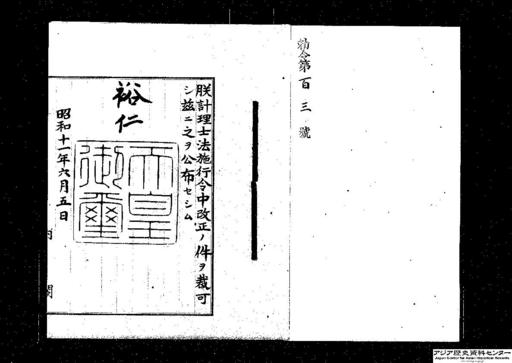 勅令第百三號
朕計理士法施行令中改正ノ件ヲ裁可
シ茲ニ之ヲ公布セシム
裕仁
天皇
御璽
昭和十一年六月五日
内閣
アジア歴史資料センター
Japan Center for Asian Historical Records